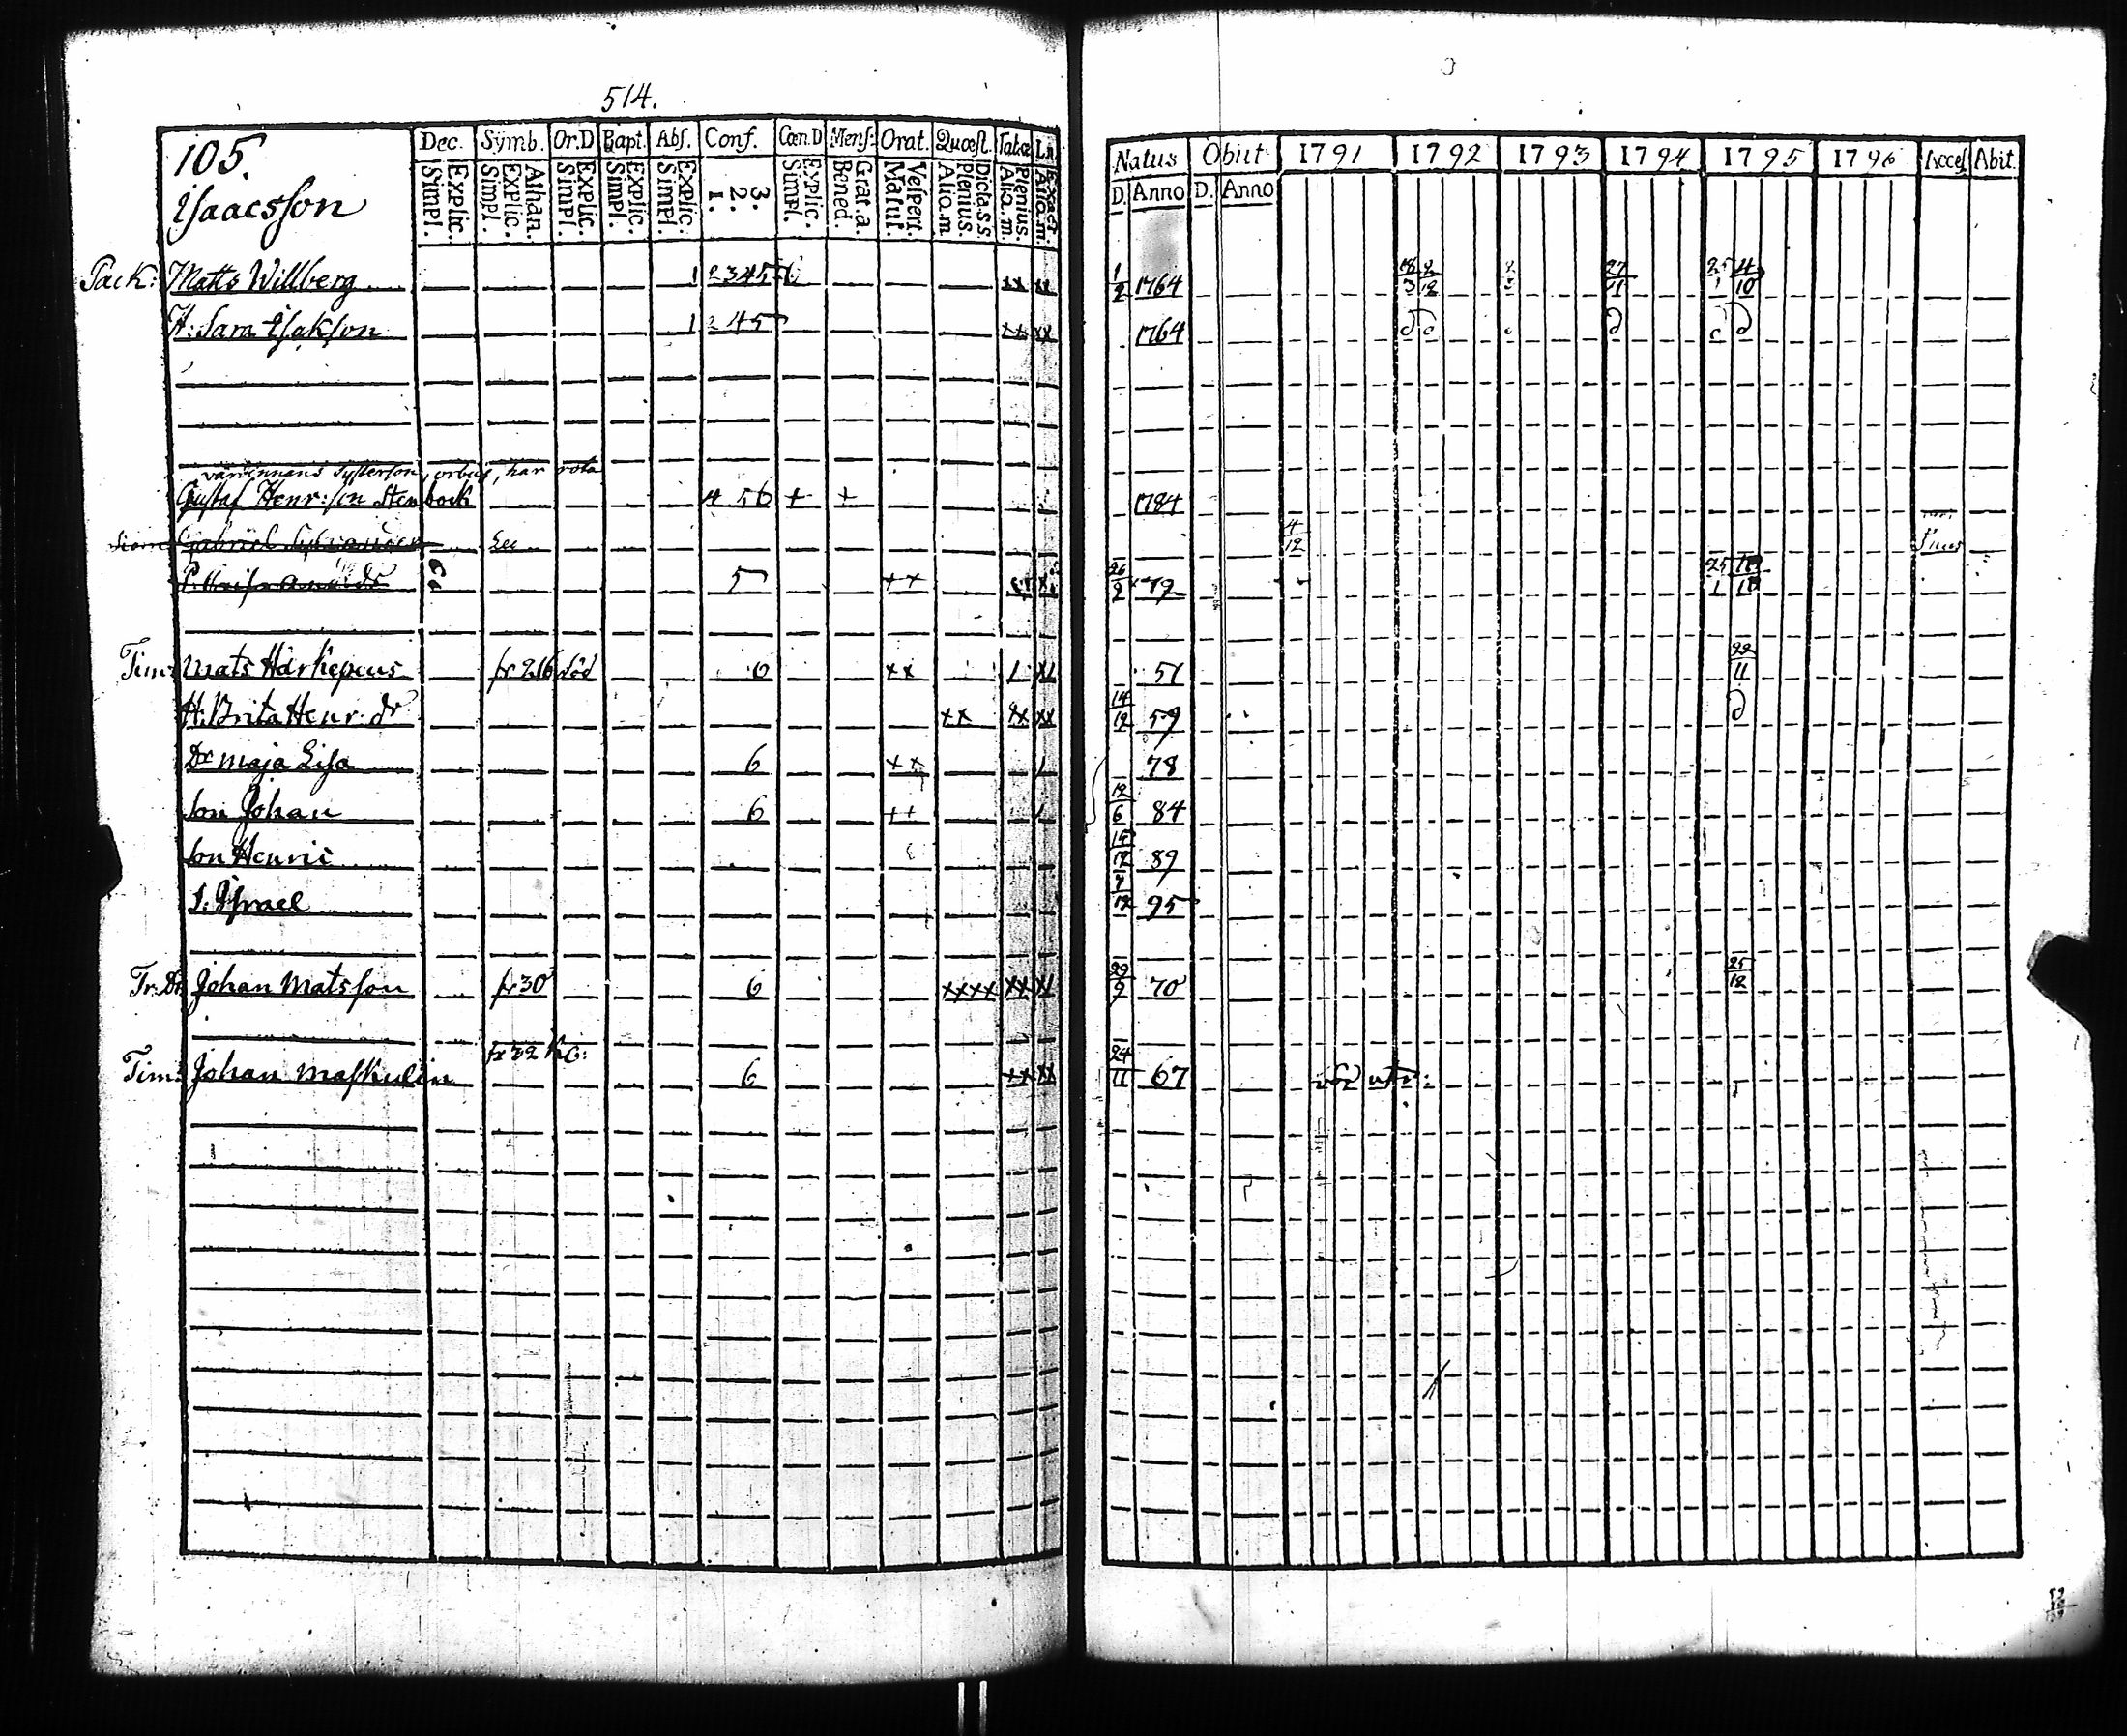 514.
105.
Isaacsson
Dec. Symb. Or.D Bapt. Abs. Conf. Cœn.D Mens: Orat. Quæst. Tabæ
Explic. Simpl. Athan. Explic. Simpl. Explic. Simpl. Explic. Simpl. Explic. Simpl. 3. 2. 1. Explic. Simpl. Grat.a. Bened. Vespert. Matut. Dicta.s.s. Plenius. Alio.m Plenius. Alio.m.
Natus Obiit 1791 1792 1793 1794 1795 1796 Acces Abit.
D. Anno D. Anno
Pack: Matts Willberg 1 2345 xx 1/2 1764 18/3 2/12 27/11 25/1 4/10
H: Sara Isakson 1 245 xx xx 1764
värdinnans systerson, orbus, har rota
Gustaf Henr:son Stenbock 4 56 + + 1784
Gabriel 4/12
5 ++ 26/2 72 25/1
Tim: Mats Härkepeus fr 216 död 6 xx 51 22/11
H: Brita Henr: dr xx xx xx 14/12 59
Dr Maja Lisa 6 xx 78
Son Johan 6 ++ 12/6 84
Son Henric 89
S: Israel 95
Tr: Dr Johan Matsson fr 30 6 xxxx xx 29/9 70 25/12
fr 32 
Tim: Johan Maskulin 6 xx xx 24/11 67